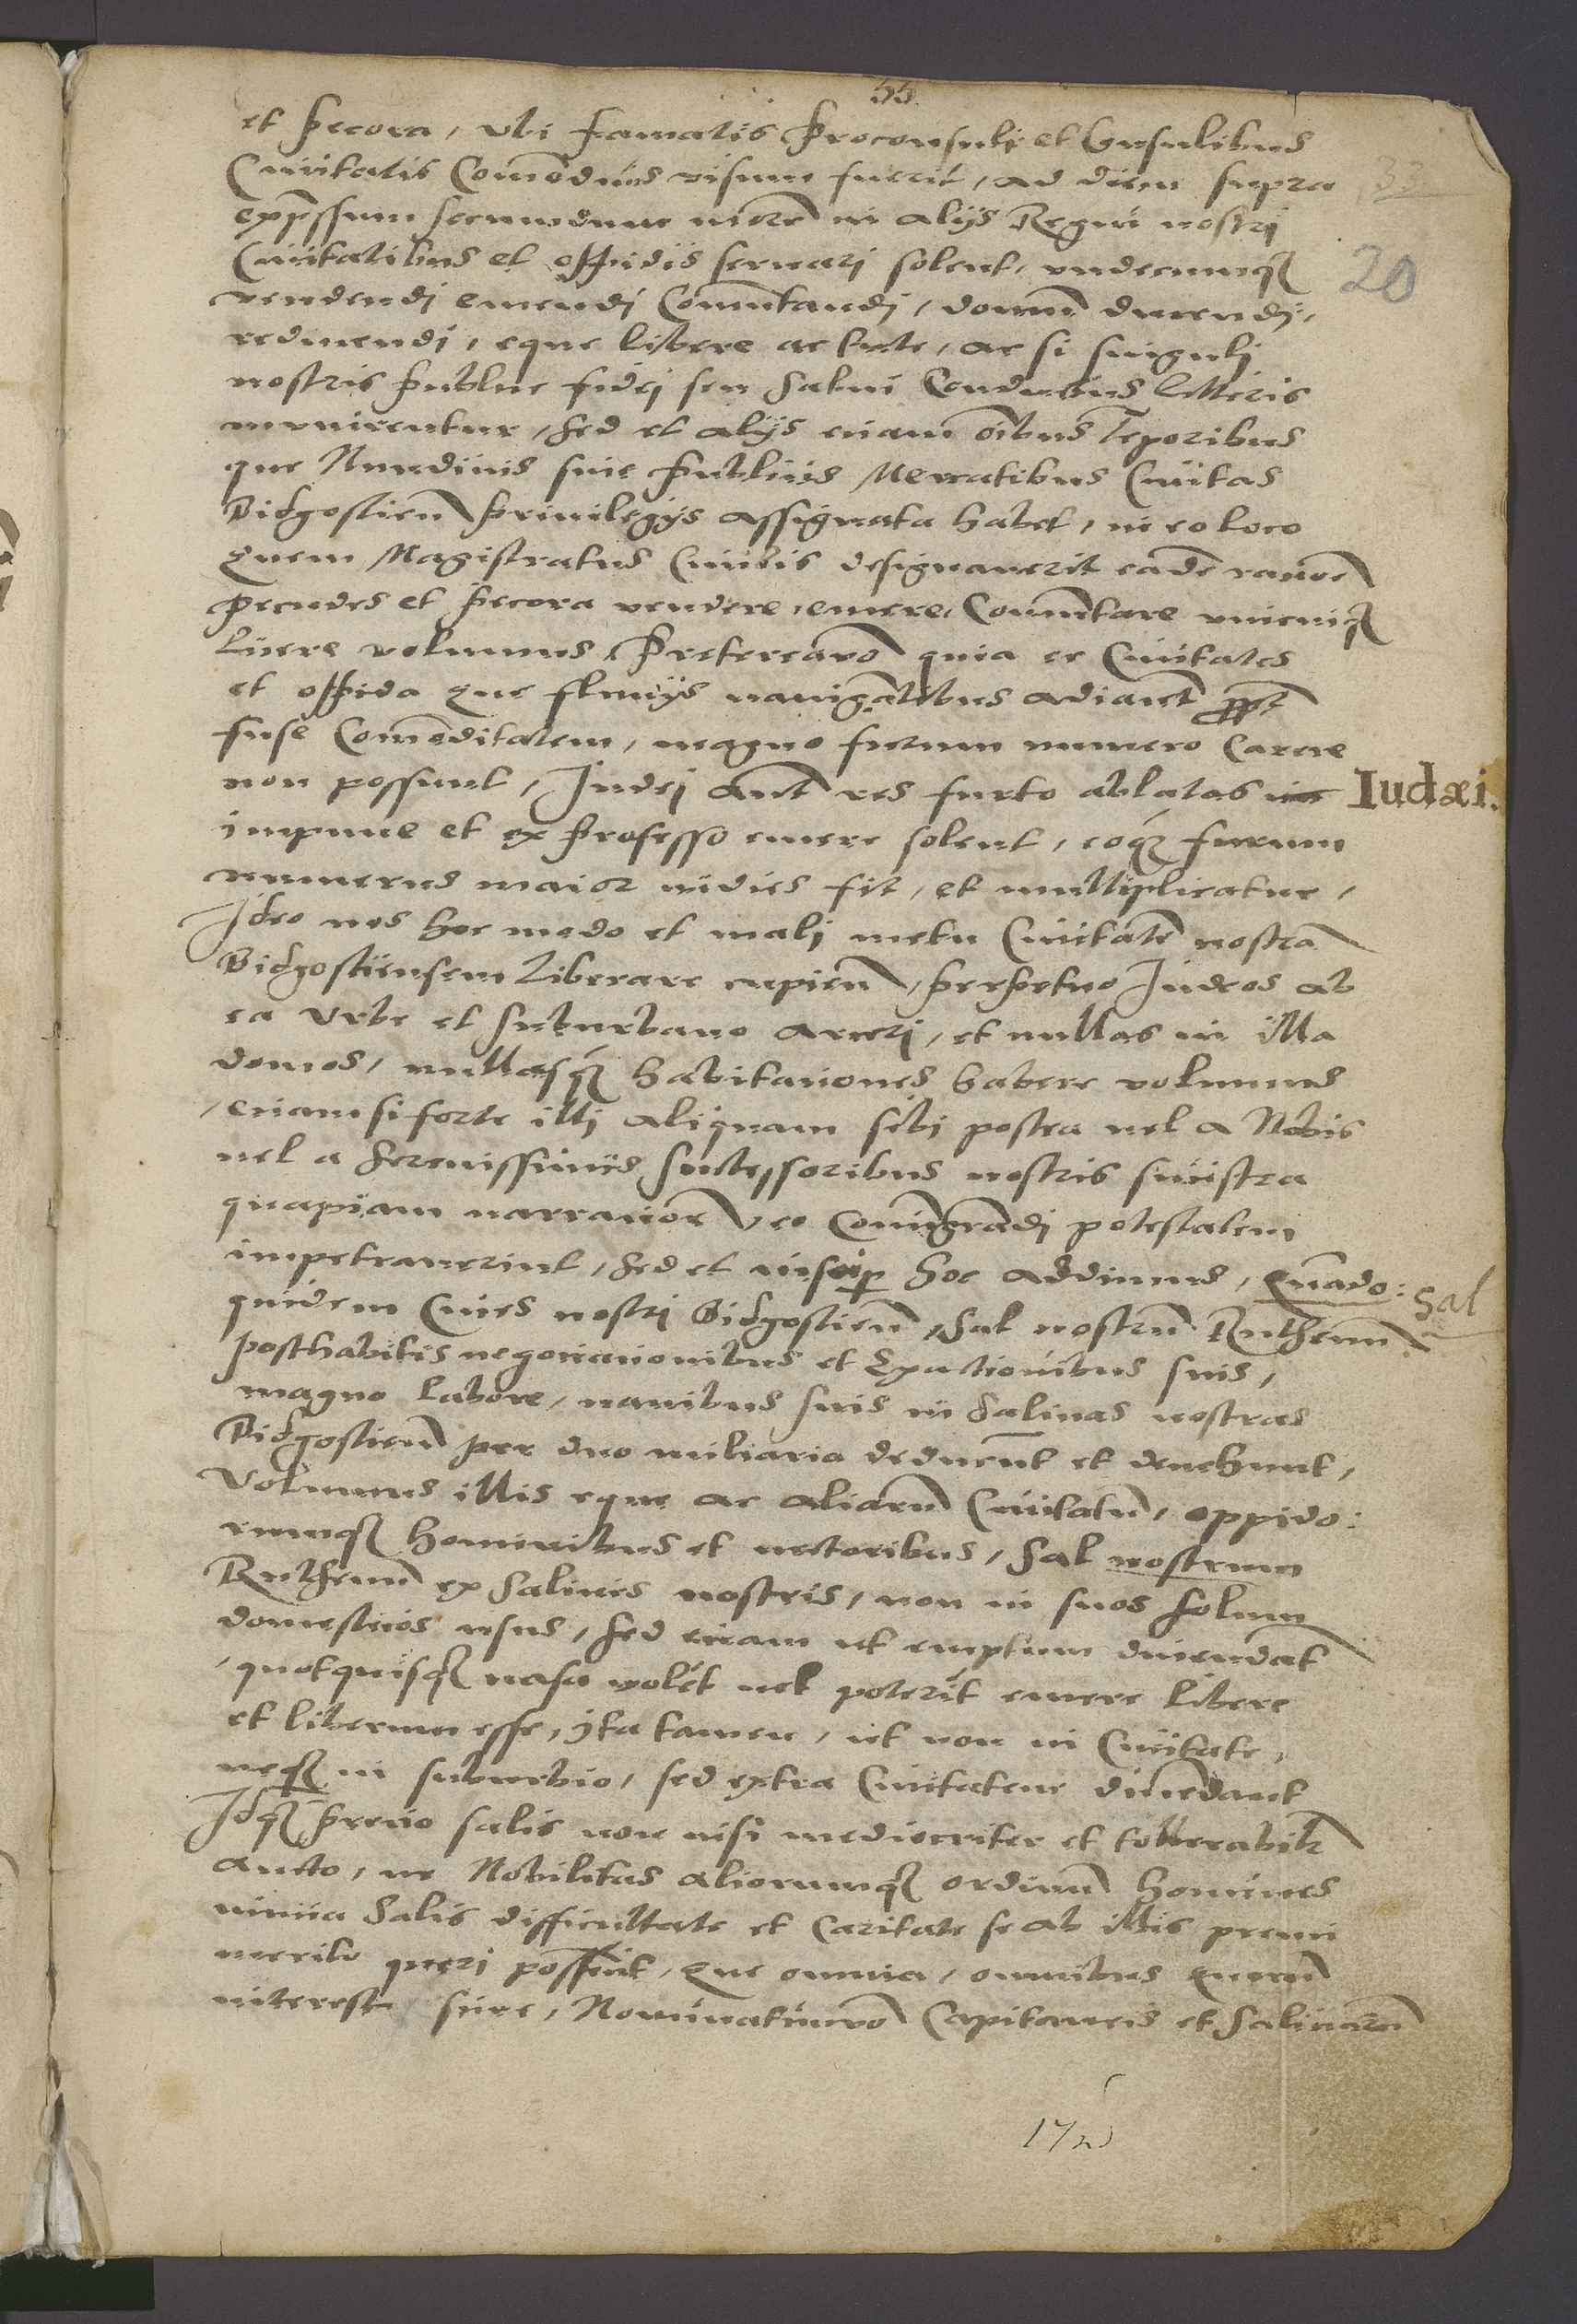 55
et pecora, ubi famatis Proconsuli et Consulibus
Civitatis Comodius visum fuerit, ad diem supra
33
expssum secundum morem in alijs Regni nostri
Civitatibus et oppidis servari solent, undecumq
20
vendendi emendi Comutandi, domum ducendi,
reducendi, eque libere ac tute, ac si singuli
nostris publice fidei seu salvi Conductus litteris
munirentur, sed et alijs eciam oibus teporibus
que Nundinis sive publicis Mercatibus Civitas
Bidgostien privilegijs assignata habet, in eo loco
quem Magistratus Civilis designaverit eade racione
pecudes et pecora vendere, emere, Comutare unicuiq
licere volumus. Pretereavo quia ee Civitates
et oppida que fluvijs navigantibus adiacet propt
suse Comoditatem, magno furum numero Carere
non possunt, Iudei aut res furto ablatas
Iudæi.
impune et ex professo emere solent, eoq furum
numerus maior indies fit, et multiplicatur,
Ideo nos hoc modo et mali metu Civitate nostra
Bidgostiensem liberare cupien, perpetuo Iudeos ab
ea urbe et suburbano arceri, et nullas in illa
domos, nullasq habitaciones habere volumus
eciamsi forte illi aliquam sibi postea vel a Nobis
vel a serenissimis successoribus nostris sinistra
quapiam narracione eo Comigradi potestatem
impetraverint, sed et insup hoc addimus, Quado:
Sal
quidem Cives nostri Bidgostien, sal nostru Ruthenu
posthabitis negociacionibus et expactionibus suis,
magno labore, navibus suis in Salinas nostras
Bidgostien per duo miliaria deducut et devehunt,
Volumus illis eque ac aliaru Civitatu, oppido:
rumq hominibus et vectoribus, Sal nostrum
Ruthenu ex Salinis nostris, non in suos solum
domesticos usus, sed eciam ut emptum divendat
quotquisq vasa volet vel poterit emere libere
et liberum esse, yta tamen, ut non in Civitate,
neq in suburbio, sed extra Civitatem divendant
Idq precio salis non nisi mediocriter et tollerabilr
aucto, ne Nobilitas aliorumq ordinu homines
nimia Salis difficultate et Caritate se ab illis premi
merito queri possent, Que omnia, omnibus quoru
interest scire, Nominatimvo Capitaneis et Salinaru